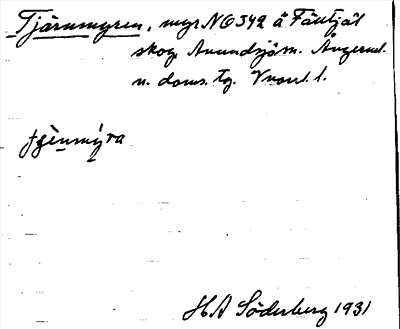 Tjärnmyren, myr NO 342 å Fäutjäl
skog, Anundsjö sn. Ångerml.
n. doms. tg.
tjènmýra
HA Söderberg 1931